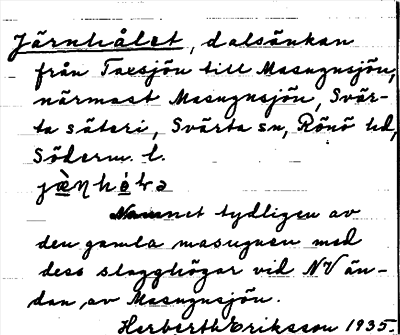 Järnhålet, dalsänkan
från Taxsjön till Masugnsjön,
närmast Masugnsjön, Svär-
ta säteri, Svärta sn, Rönö hd,
Söderm. l.
Namnet tydligen av
den gamla masugnen med
dess slagghögar vid NV än-
dan av Masugnsjön.
Herberth Eriksson 1935.